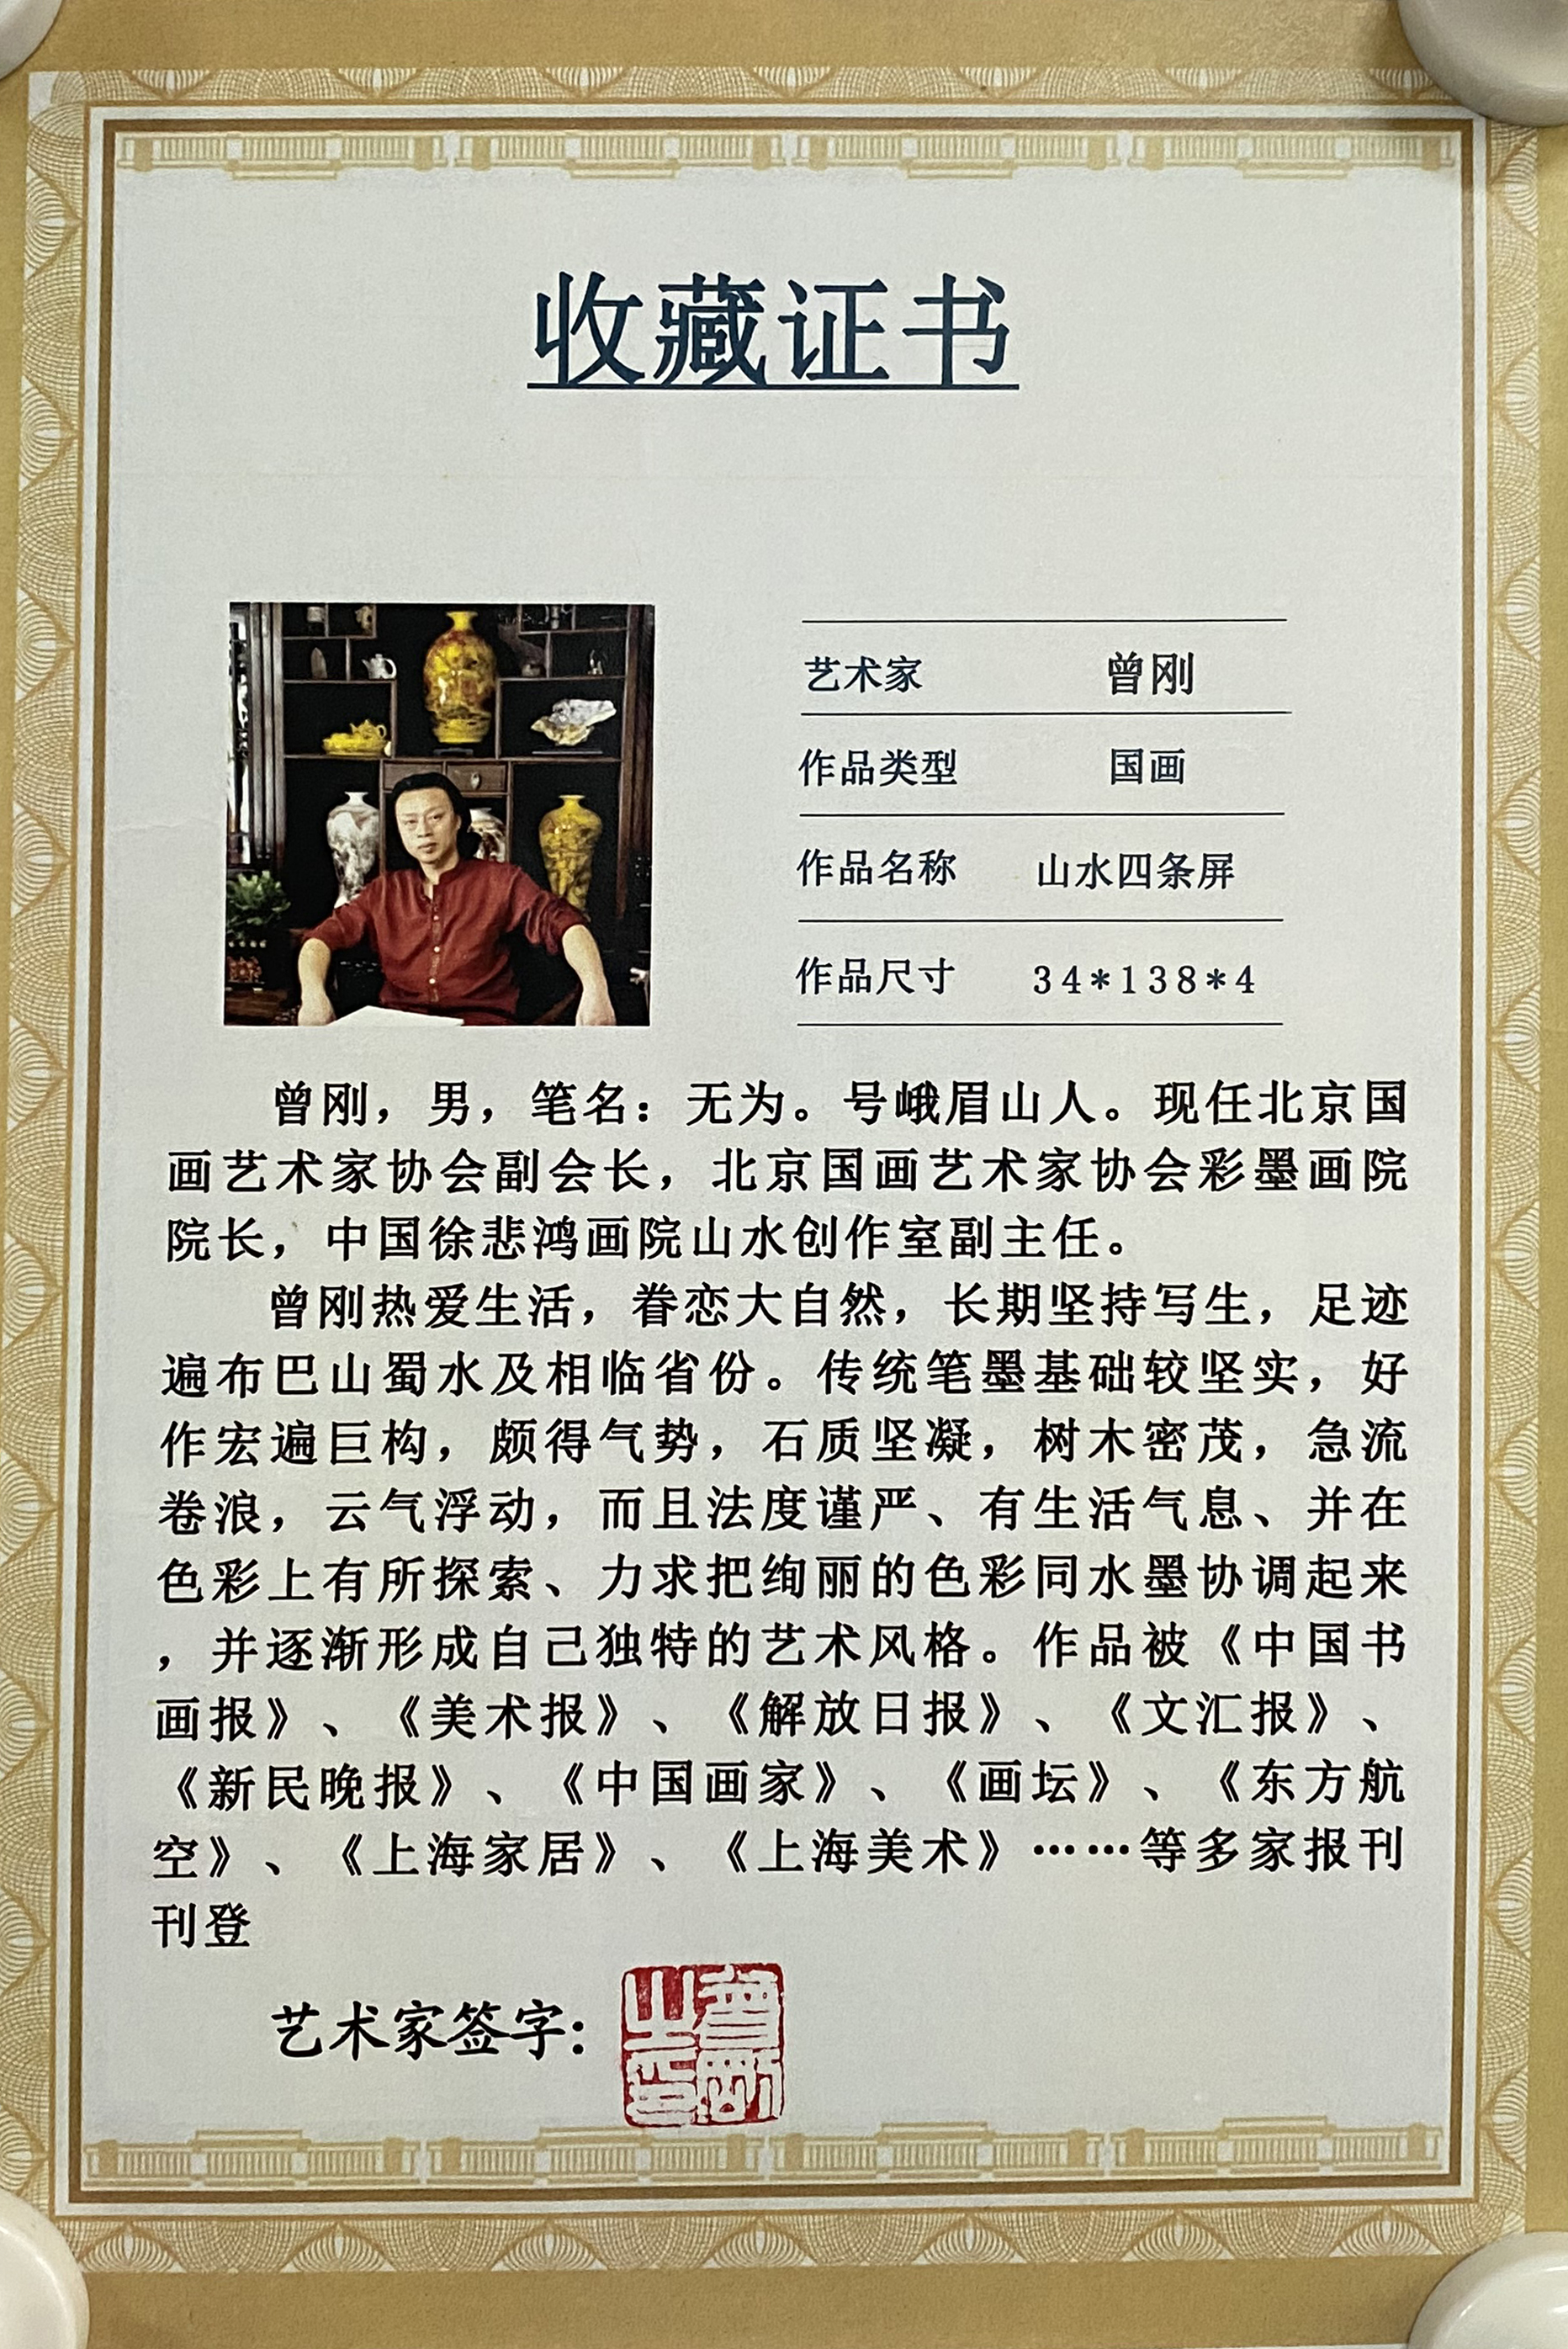 收藏证书
艺术家 曾刚
作品类型 国画
作品名称 山水四条屏
作品尺寸 34*138*4
曾刚，男，笔名：无为。号峨眉山人。现任北京国
画艺术家协会副会长，北京国画艺术家协会彩墨画院
院长，中国徐悲鸿画院山水创作室副主任。
曾刚热爱生活，眷恋大自然，长期坚持写生，足迹
遍布巴山蜀水及相临省份。传统笔墨基础较坚实，好
作宏遍巨构，颇得气势，石质坚凝，树木密茂，急流
卷浪，云气浮动，而且法度谨严、有生活气息、并在
色彩上有所探索、力求把绚丽的色彩同水墨协调起来
，并逐渐形成自己独特的艺术风格。作品被《中国书
画报》、《美术报》、《解放日报》、《文汇报》、
《新民晚报》、《中国画家》、《画坛》、《东方航
空》、《上海家居》、《上海美术》……等多家报刊
刊登
艺术家签字：
曾刚之印